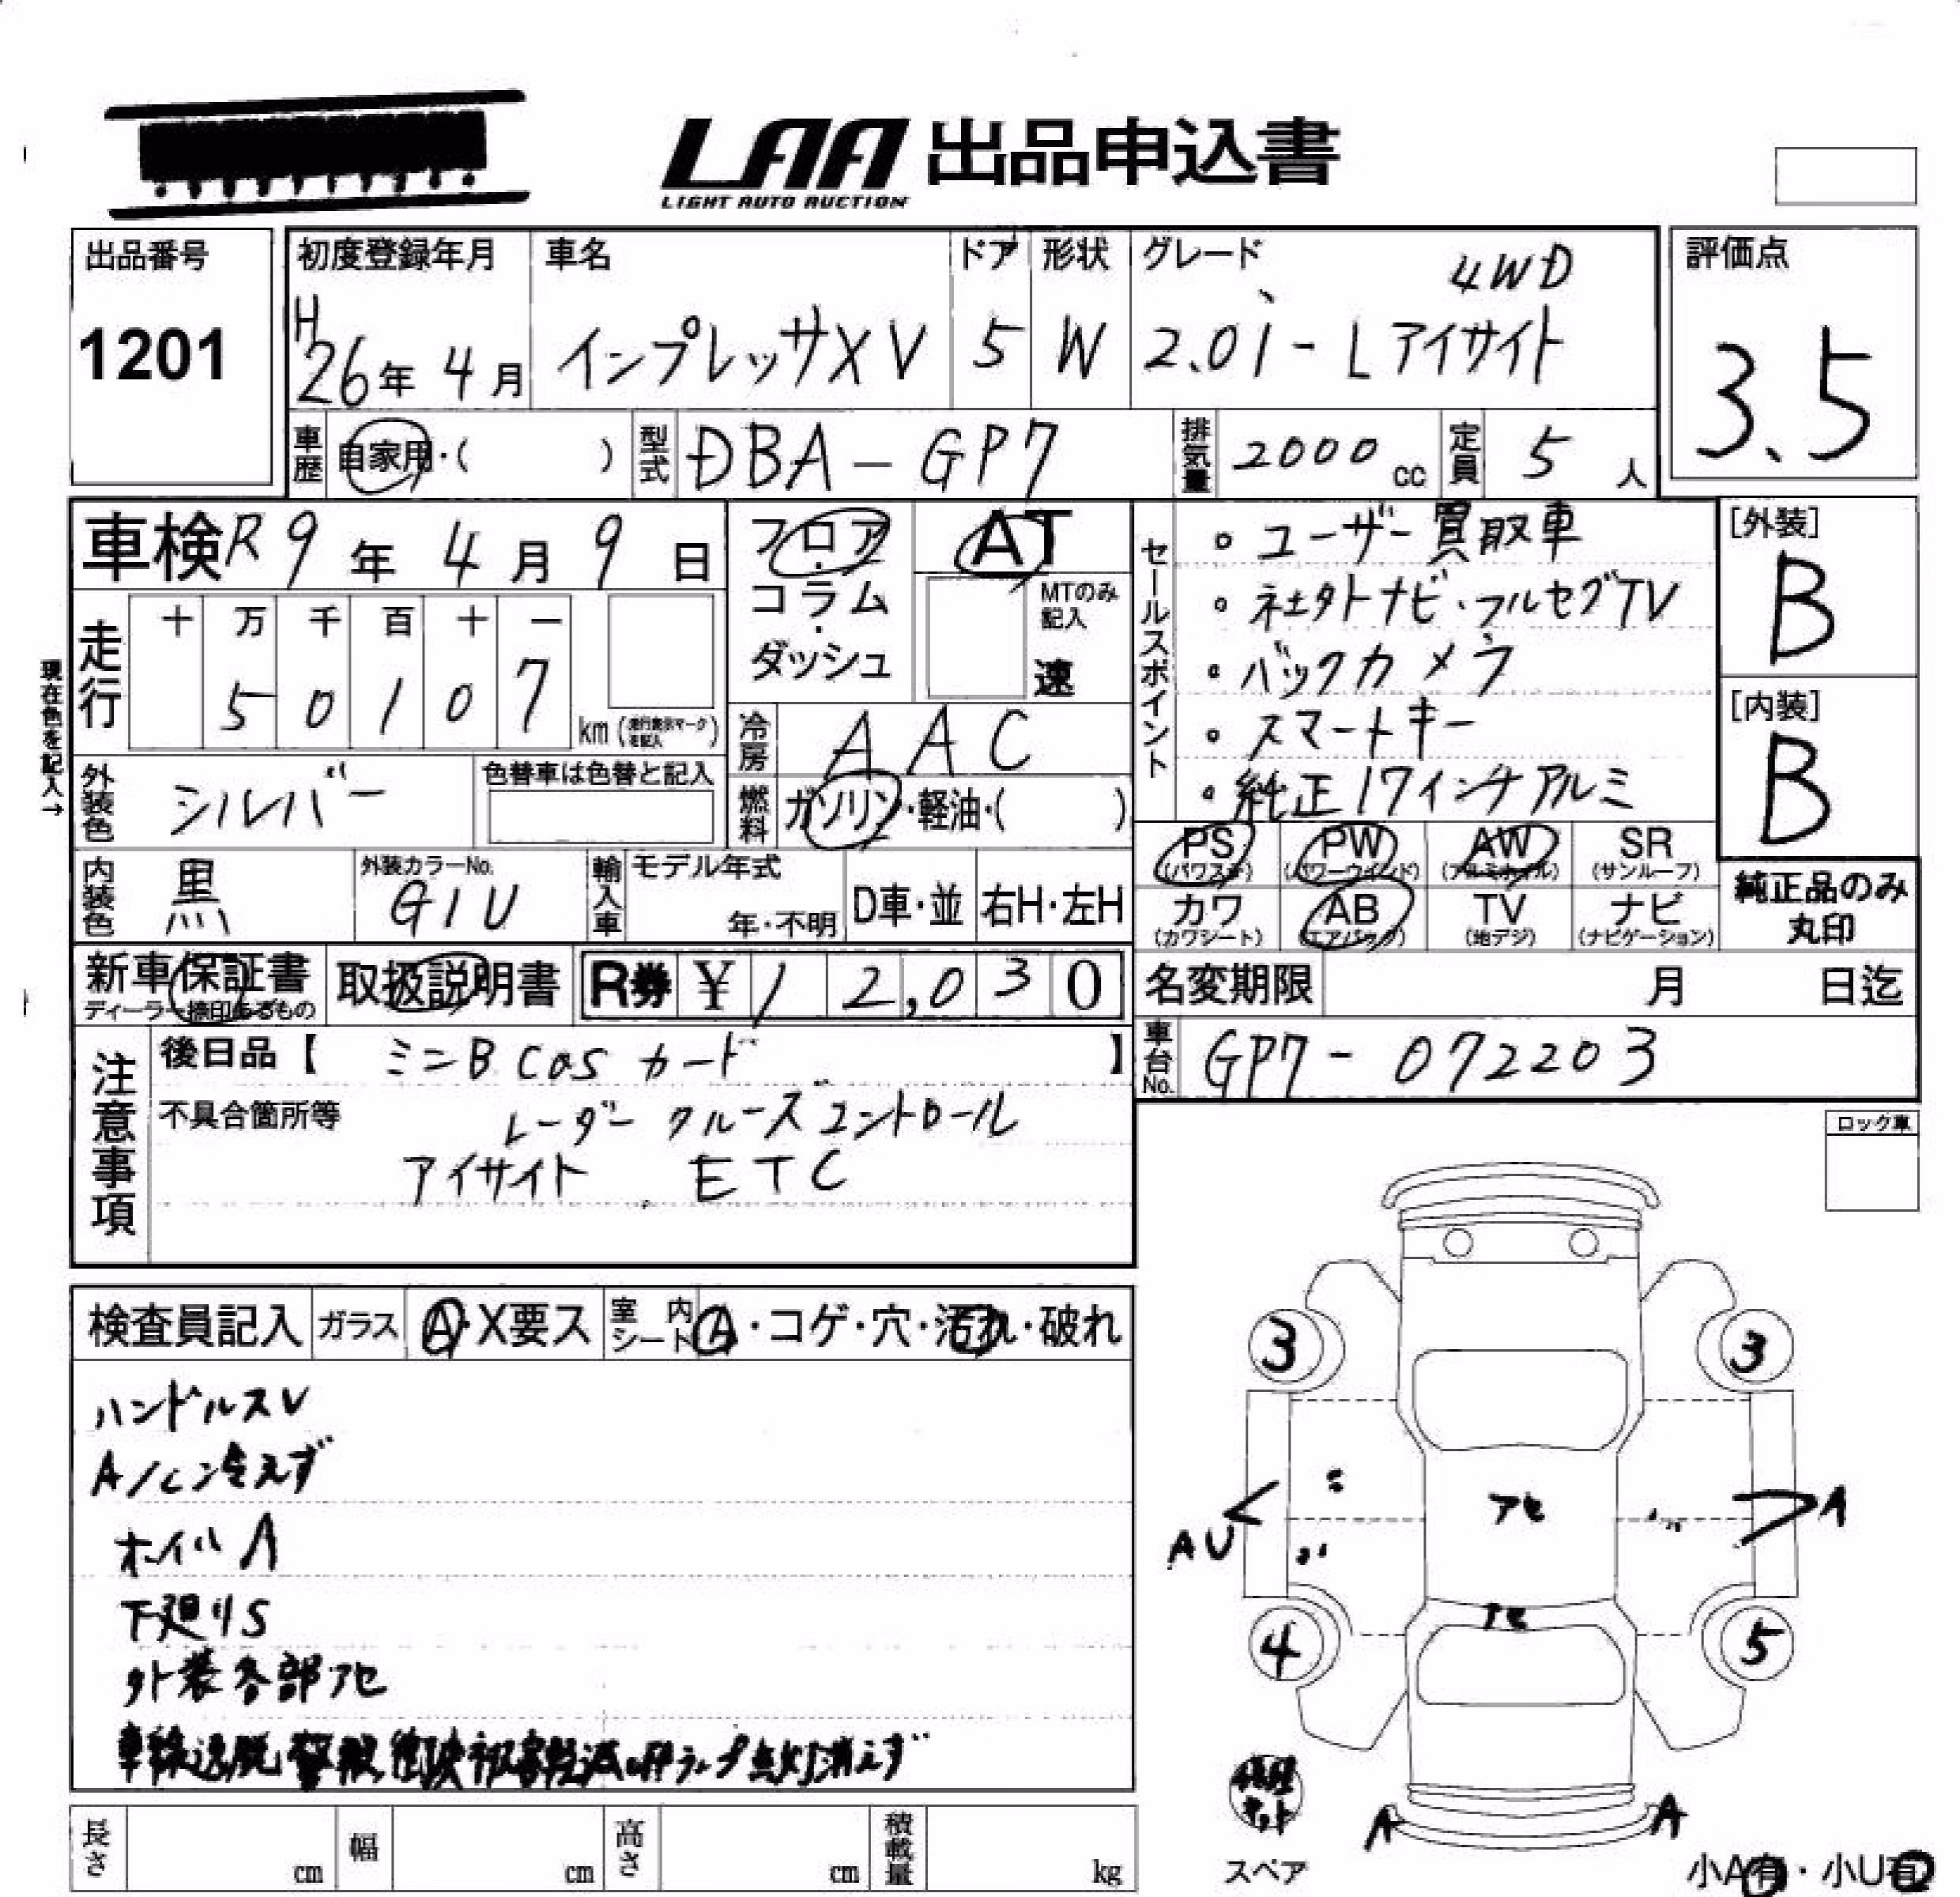 LAA 出品申込書
LIGHT AUTO AUCTION
出品番号
1201
初度登録年月
H26年 4月
車名
インプレッサXV
ドア
5
形状
W
グレード
4WD
2.0i-L アイサイト
評価点
3.5
車歴 自家用・( )
型式 DBA-GP7
排気量 2000 cc
定員 5 人
車検 R9年 4月 9日
フロア・コラム・ダッシュ
AT
MTのみ記入
速
走行 十 万 千 百 十 一
5 0 1 0 7
km
現在色を記入→
冷房 AAC
外装色 シルバー
色替車は色替と記入
燃料 ガソリン・軽油・( )
内装色 黒
外装カラーNo.
G1U
輸入車 モデル年式
年・不明
D車・並
右H・左H
セールスポイント
・ユーザー買取車
・社外ナビ・フルセグTV
・バックカメラ
・スマートキー
・純正17インチアルミ
[外装]
B
[内装]
B
PS (パワステ)
PW (パワーウインド)
AW (アルミホイル)
SR (サンルーフ)
カワ (カワシート)
AB (エアバック)
TV (地デジ)
ナビ (ナビゲーション)
純正品のみ丸印
新車保証書
ディーラー捺印あるもの
取扱説明書
R券 ¥12,030
名変期限 月 日迄
車台No. GP7-072203
注意事項
後日品【 ミニB CASカード 】
不具合箇所等
レーダークルーズコントロール
アイサイト ETC
ロック車
検査員記入 ガラス A・X要ス 室内シート A・コゲ・穴・汚れ・破れ
ハンドルスレ
A/C冷えず
ホイルA
下廻りS
外装各部アセ
車線逸脱警報 衝突被害軽減 ランプ点灯消えず
3
3
アセ
AU
A
アセ
4
5
A
A
修理キット
スペア
小A有・小U有
長さ cm
幅 cm
高さ cm
積載量 kg